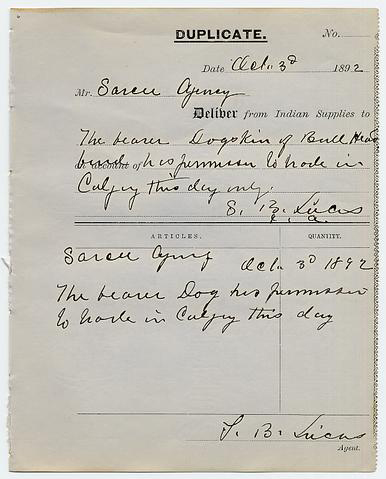 DUPLICATE.
No.
Date Oct. 3d 1892
Mr. Sarcee Agency
Deliver from Indian Supplies to
The bearer Dogskin of Bull Heads
on account of band has permission to trade in
Calgary this day only.
S. B. Lucas
I. A.
ARTICLES. QUANTITY.
Sarcee Agency Oct. 3d 1892
The bearer Dog has permission
to trade in Calgary this day
S. B. Lucas
Agent.